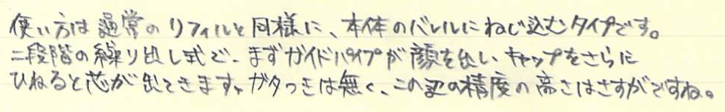 使い方は通常のリフィルと同様に、本体のバレルにねじ込むタイプです。
二段階の繰り出し式で、まずガイドパイプが顔を出し、キャップをさらに
ひねると芯が出てきます。ガタつきは無く、この辺の精度の高さはさすがですね。